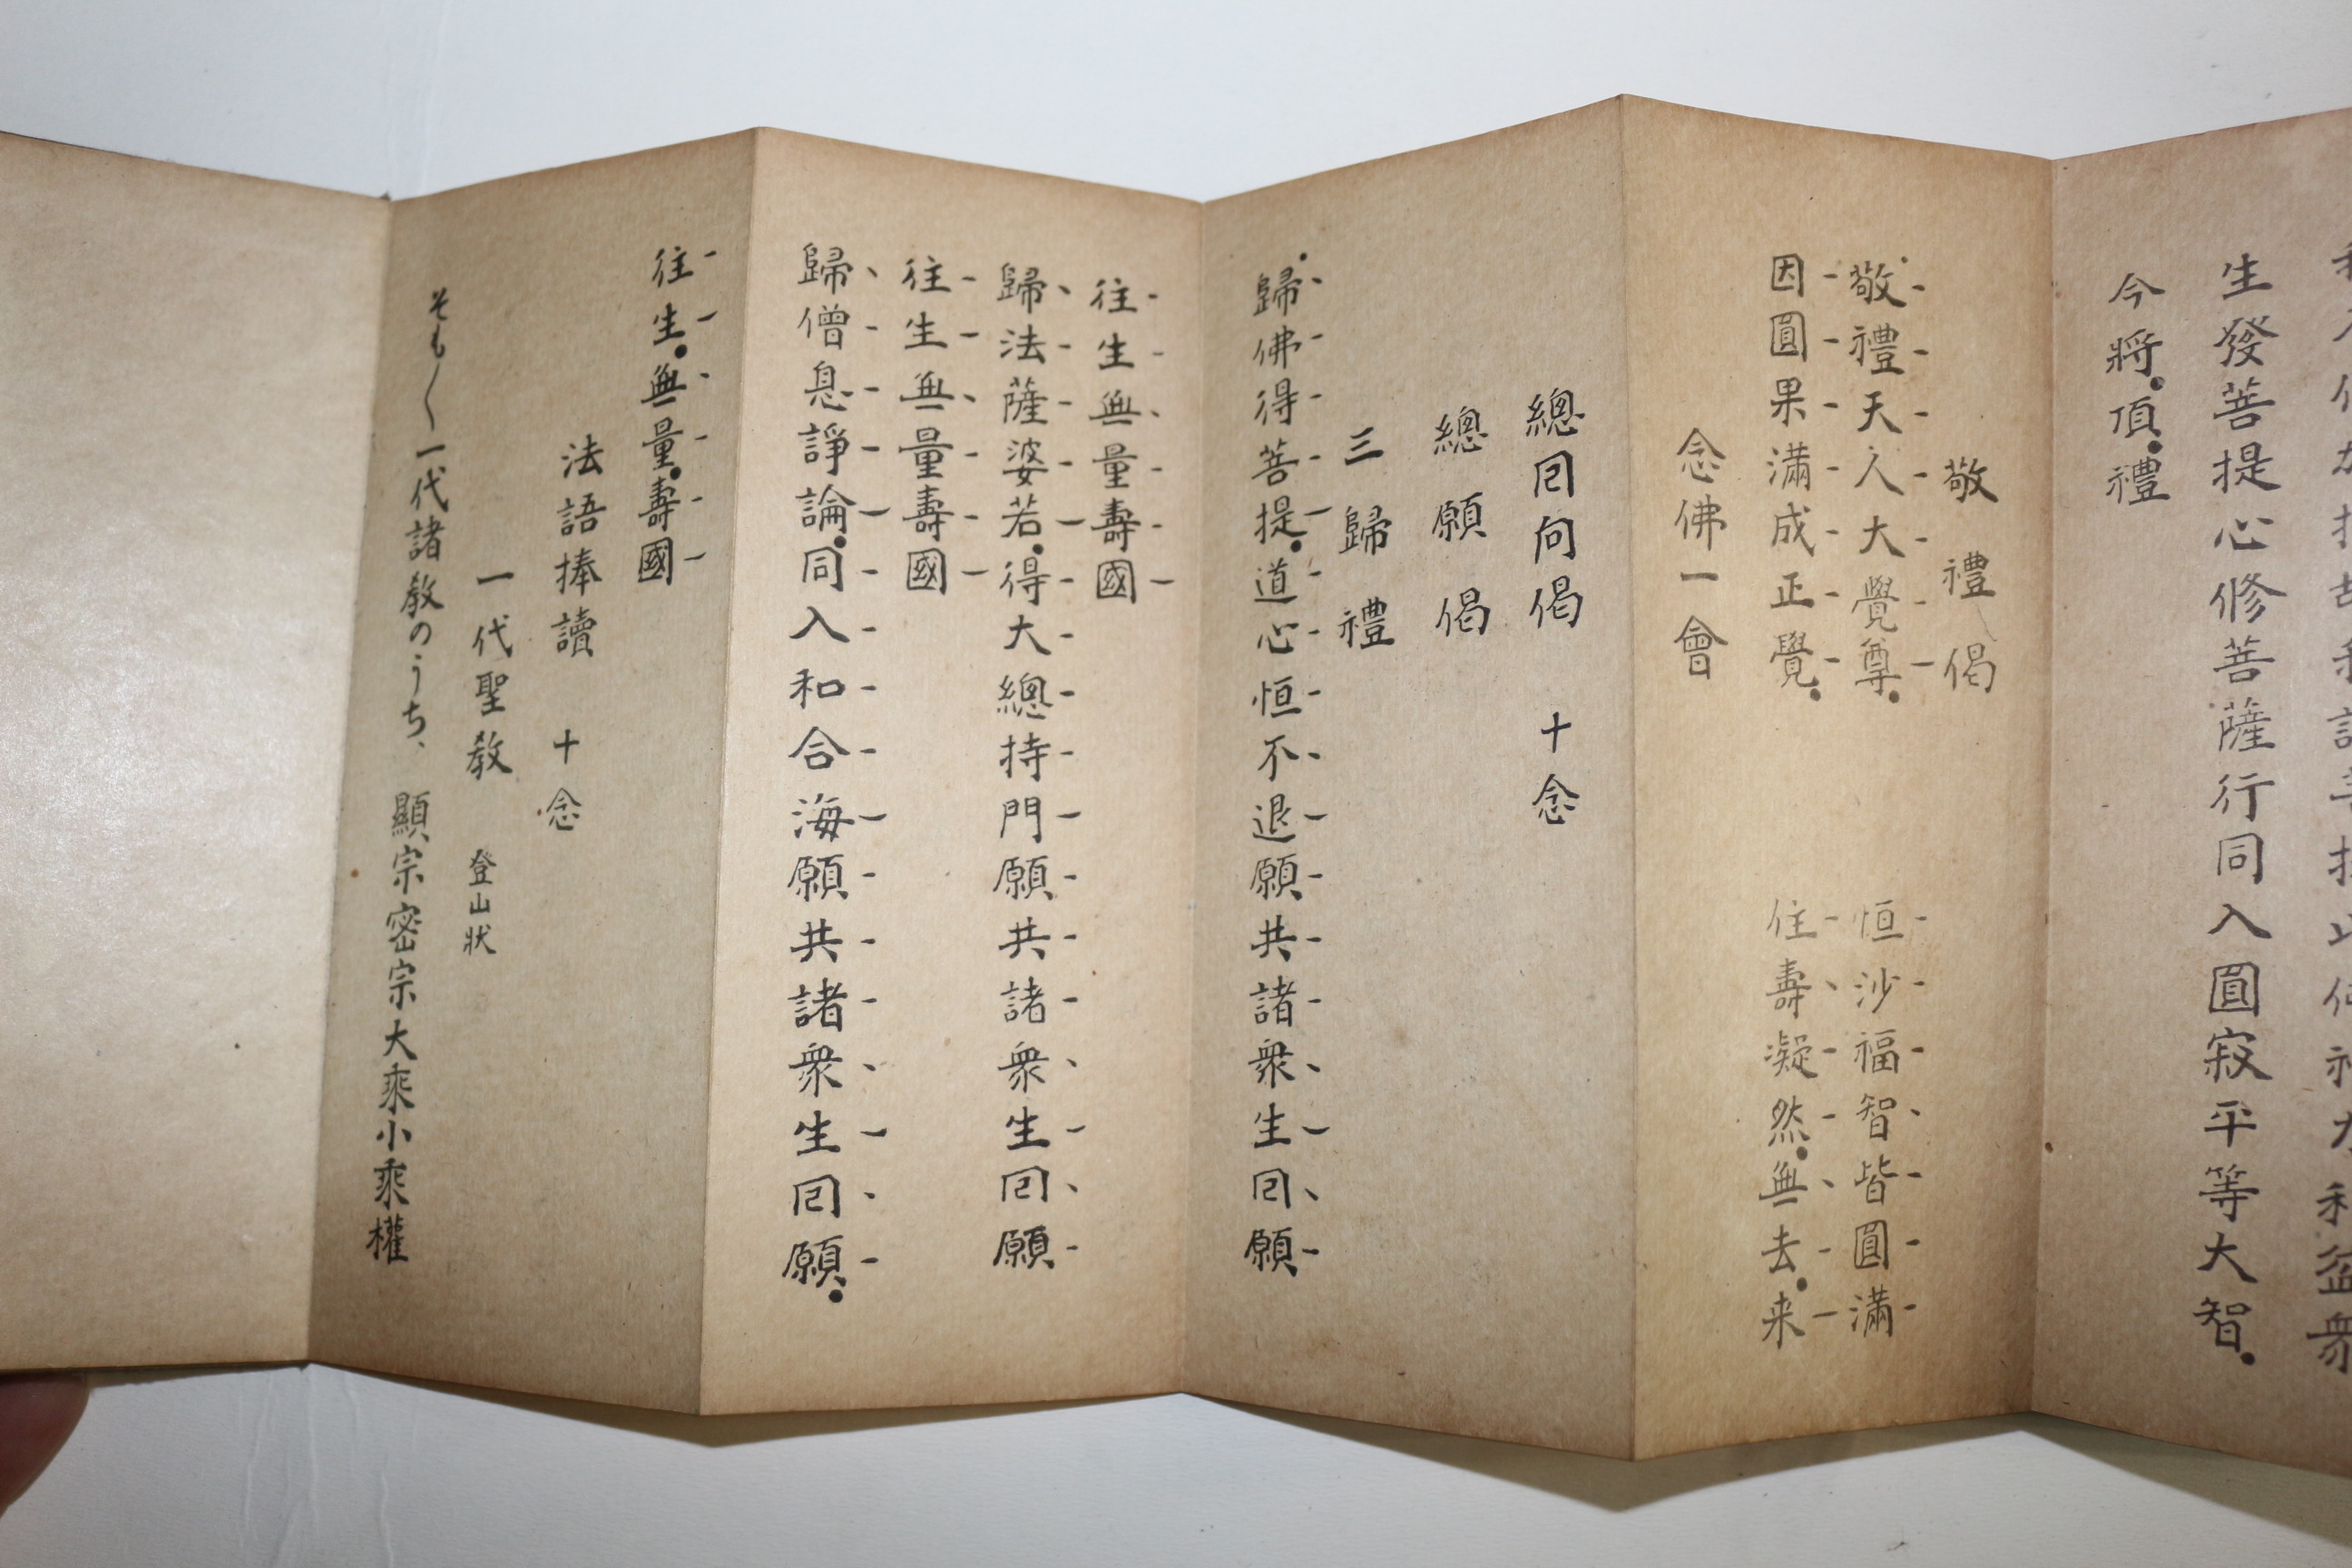 生發菩提心修菩薩行同入圓寂平等大智
今將頂禮
敬禮偈
敬禮天人大覺尊　恒沙福智皆圓滿
因圓果滿成正覺　住壽凝然無去来
念佛一會
總囘向偈　十念
總願偈
三歸禮
歸佛得菩提道心恒不退願共諸衆生囘願
往生無量壽國
歸法薩婆若得大總持門願共諸衆生囘願
往生無量壽國
歸僧息諍論同入和合海願共諸衆生囘願
往生無量壽國
法語捧讀　十念
一代聖教　登山状
そも〱一代諸教のうち、顯宗密宗大乘小乘權